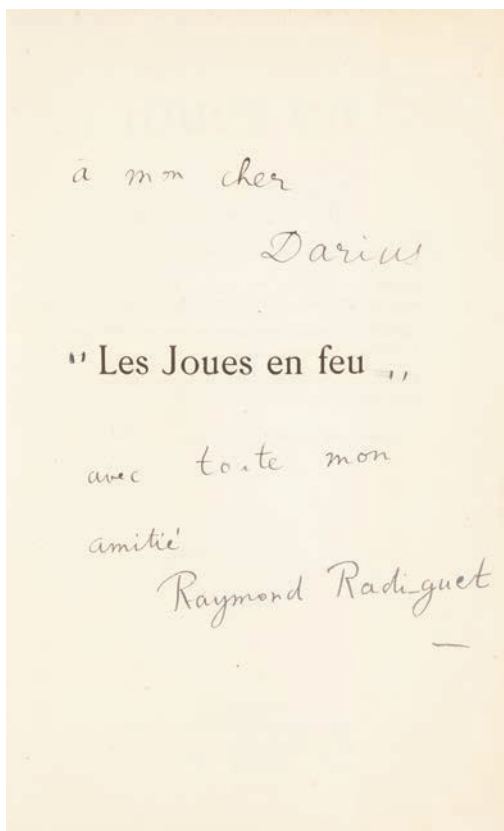 a mon cher
Darius
" Les Joues en feu "
avec toute mon
amitié
Raymond Radiguet